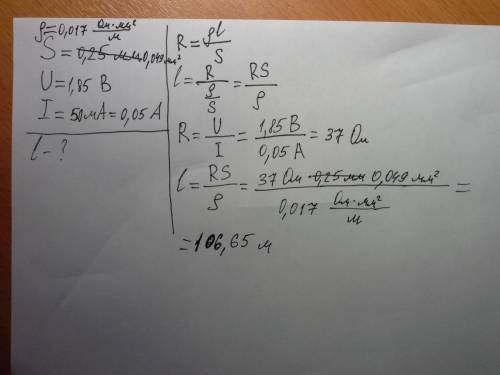 ρ=0,017 Ом·мм²/м
S = 0,25 мм 0,049 мм²
U=1,85 В
I = 50мА=0,05 А
l - ?
R = ρl/S
l = R/(ρ/S) = RS/ρ
R = U/I = 1,85 В/0,05 А = 37 Ом
l = RS/ρ = 37 Ом · 0,25 мм 0,049 мм²/0,017 Ом·мм²/м =
= 106,65 м